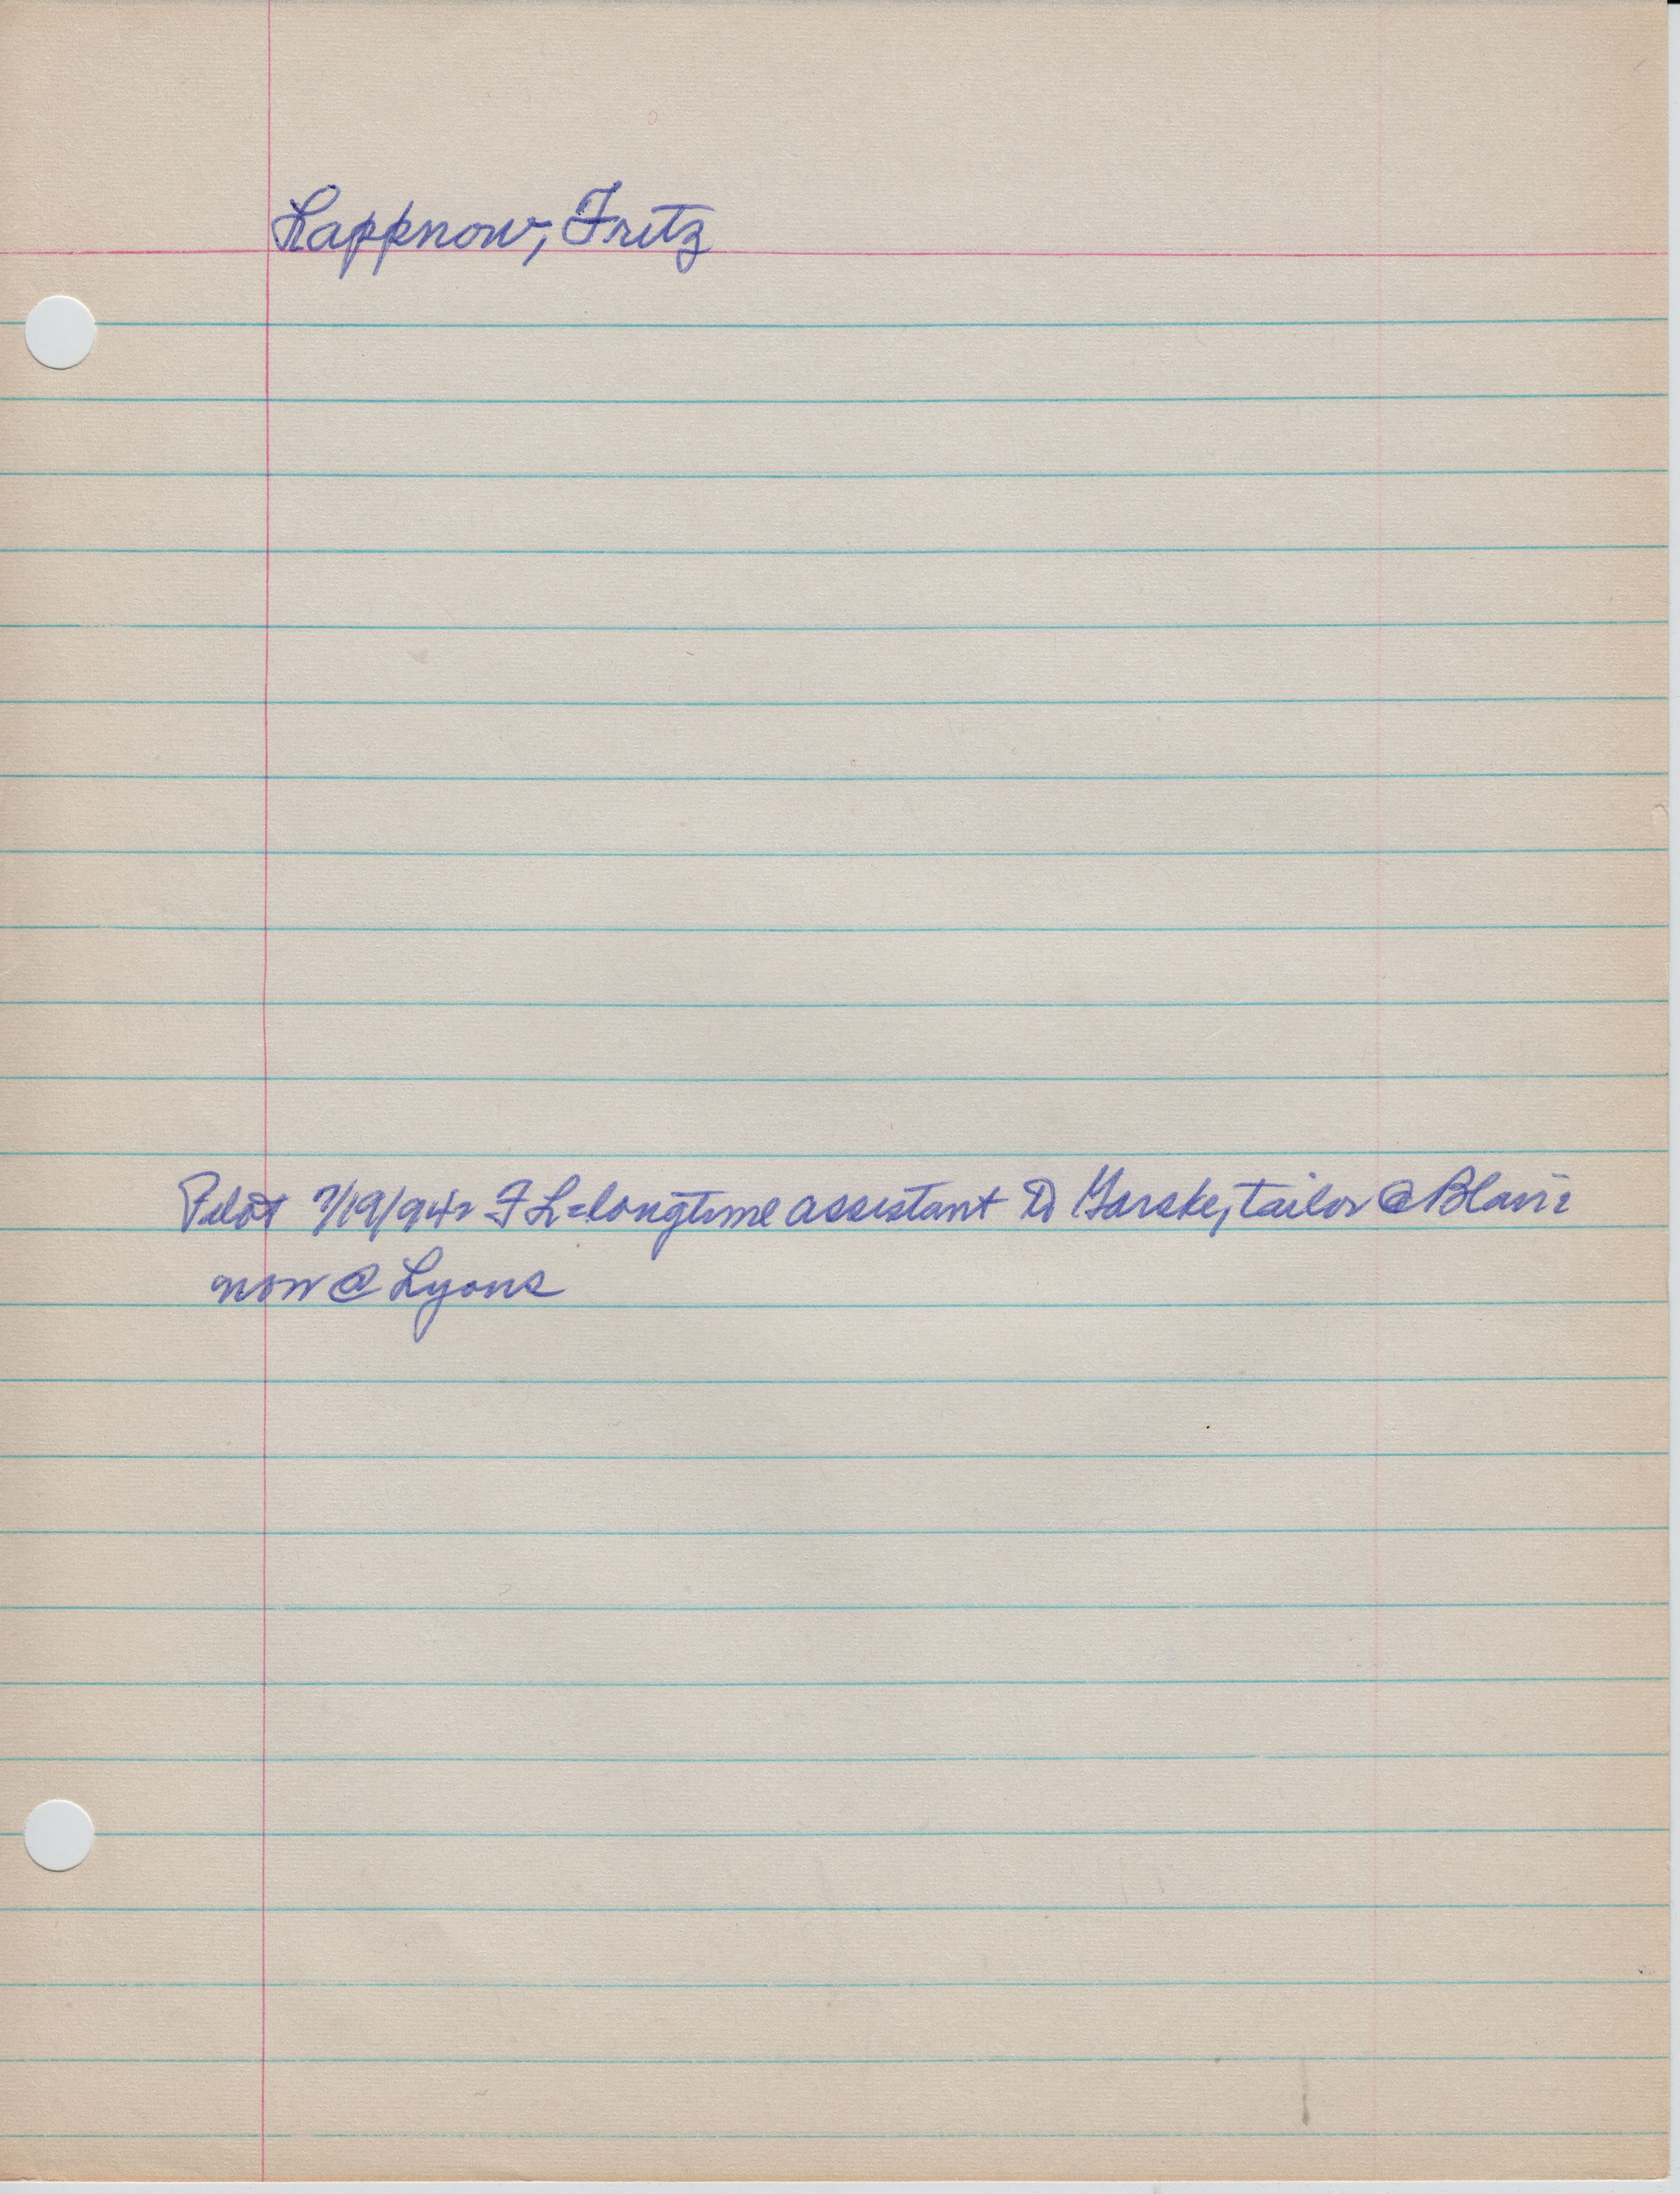 Lappnow, Fritz
Pilot 7/19/94: FL = longtime assistant to Garske, tailor @ Blair:
now @ Lyons